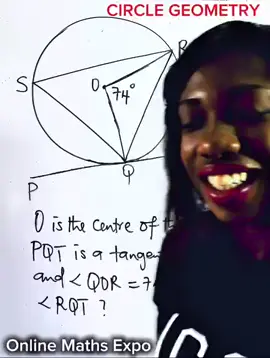 CIRCLE GEOMETRY
R
S
O
74°
Q
P
O is the centre of
PQT is a
and <QOR =
<RQT ?
Online Maths Expo